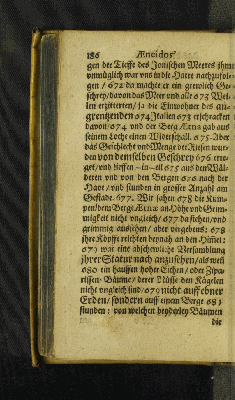 186 Æneidos
gen der Tieffe des Jonischen Meeres ihm
vnmüglich war vns in die Harre nachzufol-
gen / 672 da machte er ein grewlich Ge-
schrey / davon das Meer vnd alle 673 Wel-
len erzitterten / ja die Einwohner des an-
grentzenden 674 Italien 673 erschracken
davon / 674 vnd der Berg Ætna gab auß
seinem Loche einen Widerschall. 675 Aber
das Geschlecht vnd Menge der Riesen wur-
den von demselben Geschrey 676 erre-
get / vnd lieffen-in-eil 675 aus den Wäl-
dern vnd von den Bergen 676 nach der
Have / vnd stunden in grosser Anzahl am
Gestade. 677. Wir sahen 678 die Kum-
pen / dem Berge Ætna an Höhe vnd Grim-
migkeit nicht vngleich / 677 da stehen / vnd
grimmig aussehen / aber vergebens: 678
ihre Köpffe reichten beynah an den Himel:
679 war eine abschewliche Versamblung
ihrer Statur nach anzusehen / als weñ
680 ein hauffen hoher Eichen / oder Zipa-
rissen-Bäume / derer Nüsse den Kägelen
nicht vngleich sind / 679 nicht auff ebner
Erden / sondern auff einem Berge 681
stunden: von welchen beyderley Bäumen
die